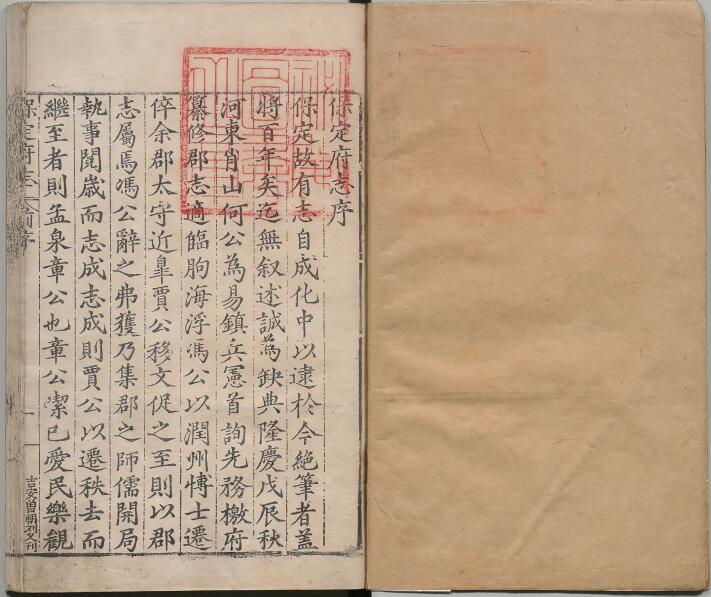 保定府志序
保定故有志自成化中以逮於今絶筆者蓋
將百年矣迄無叙述誠為缺典隆慶戊辰秋
河東肖山何公為易鎮兵憲首詢先務檄府
纂修郡志適臨朐海浮馮公以潤州博士遷
倅余郡太守近臯賈公移文促之至則以郡
志屬焉馮公辭之弗獲乃集郡之師儒開局
執事閱歲而志成志成則賈公以遷秩去而
繼至者則孟泉章公也章公潔已愛民樂觀
保定府志 前序
一
吉安曾朝列文刊